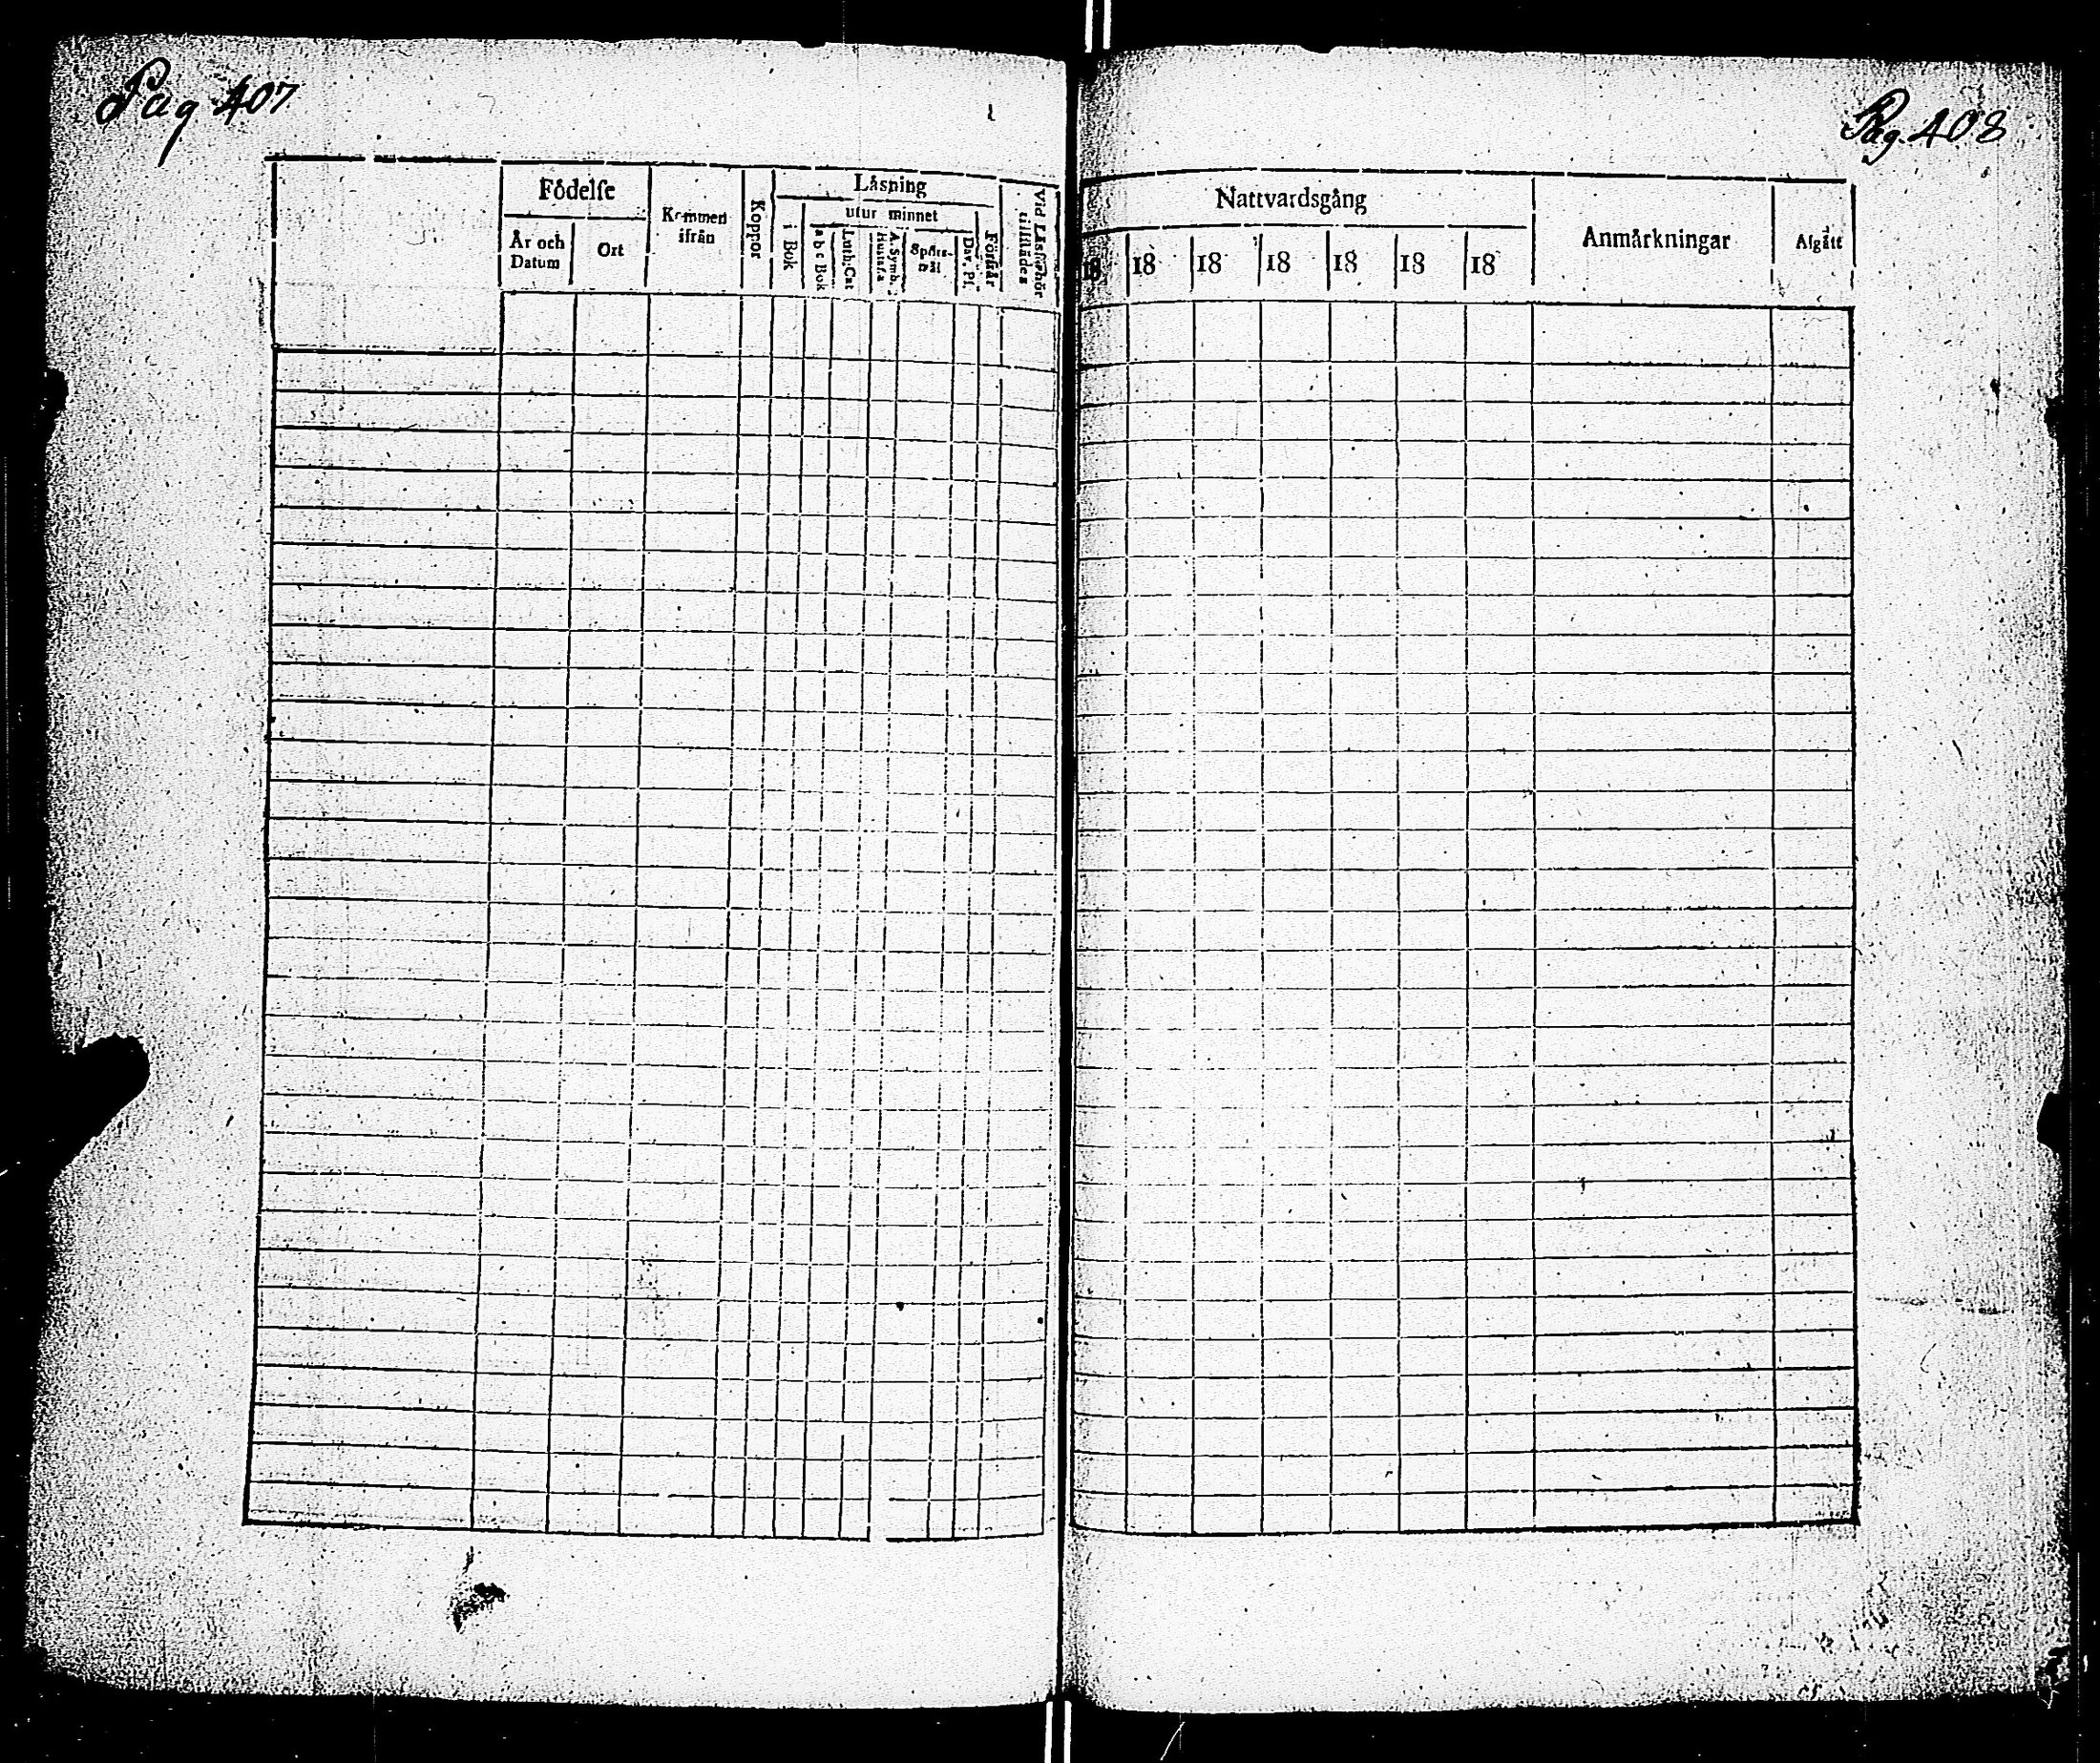 Pag 407
Födelse
År och Datum
Ort
Kommen ifrån
Koppor
Läsning
i Bok
utur minnet
a b c Bok
Luth: Cat
A. Symb.
Spörs-mål
Dav. Ps.
Förstår
Vid Läsförhör tillstädes
Pag. 408
Nattvardsgång
18 18 18 18 18 18 18
Anmärkningar
Afgått